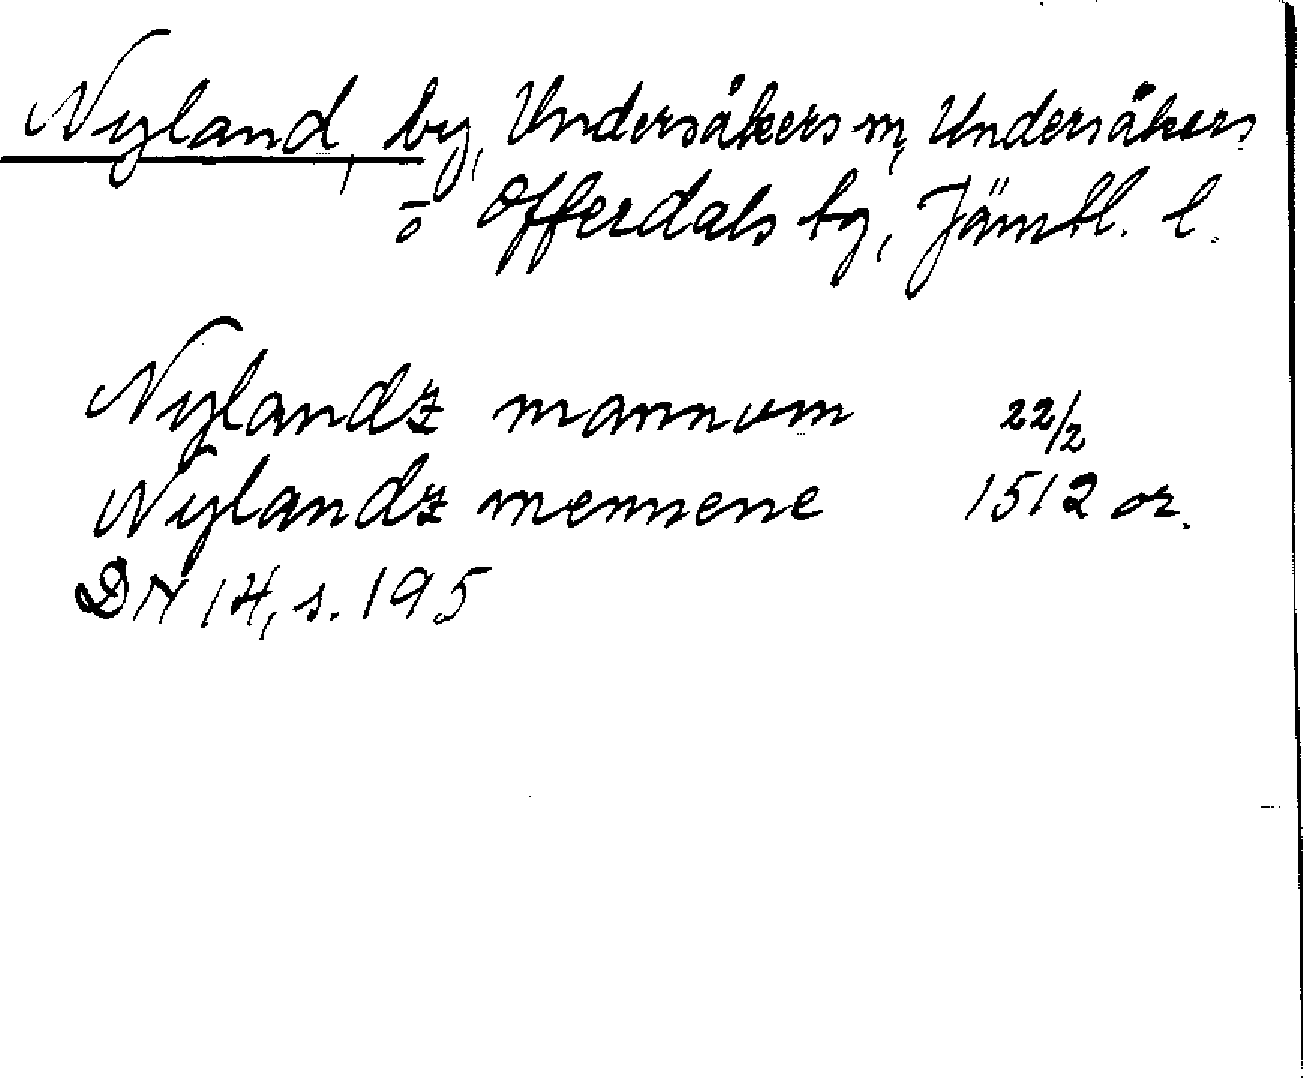 Nyland, by, Undersåkers sn, Undersåkers
o Offerdals tg, Jämtl. l.
Nylandz mannum 22/2
Nylandz mennene 1512 or.
DN 14, s. 195